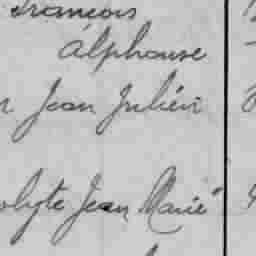 François
Alphonse
Jean Julien
olyte Jean Marie"